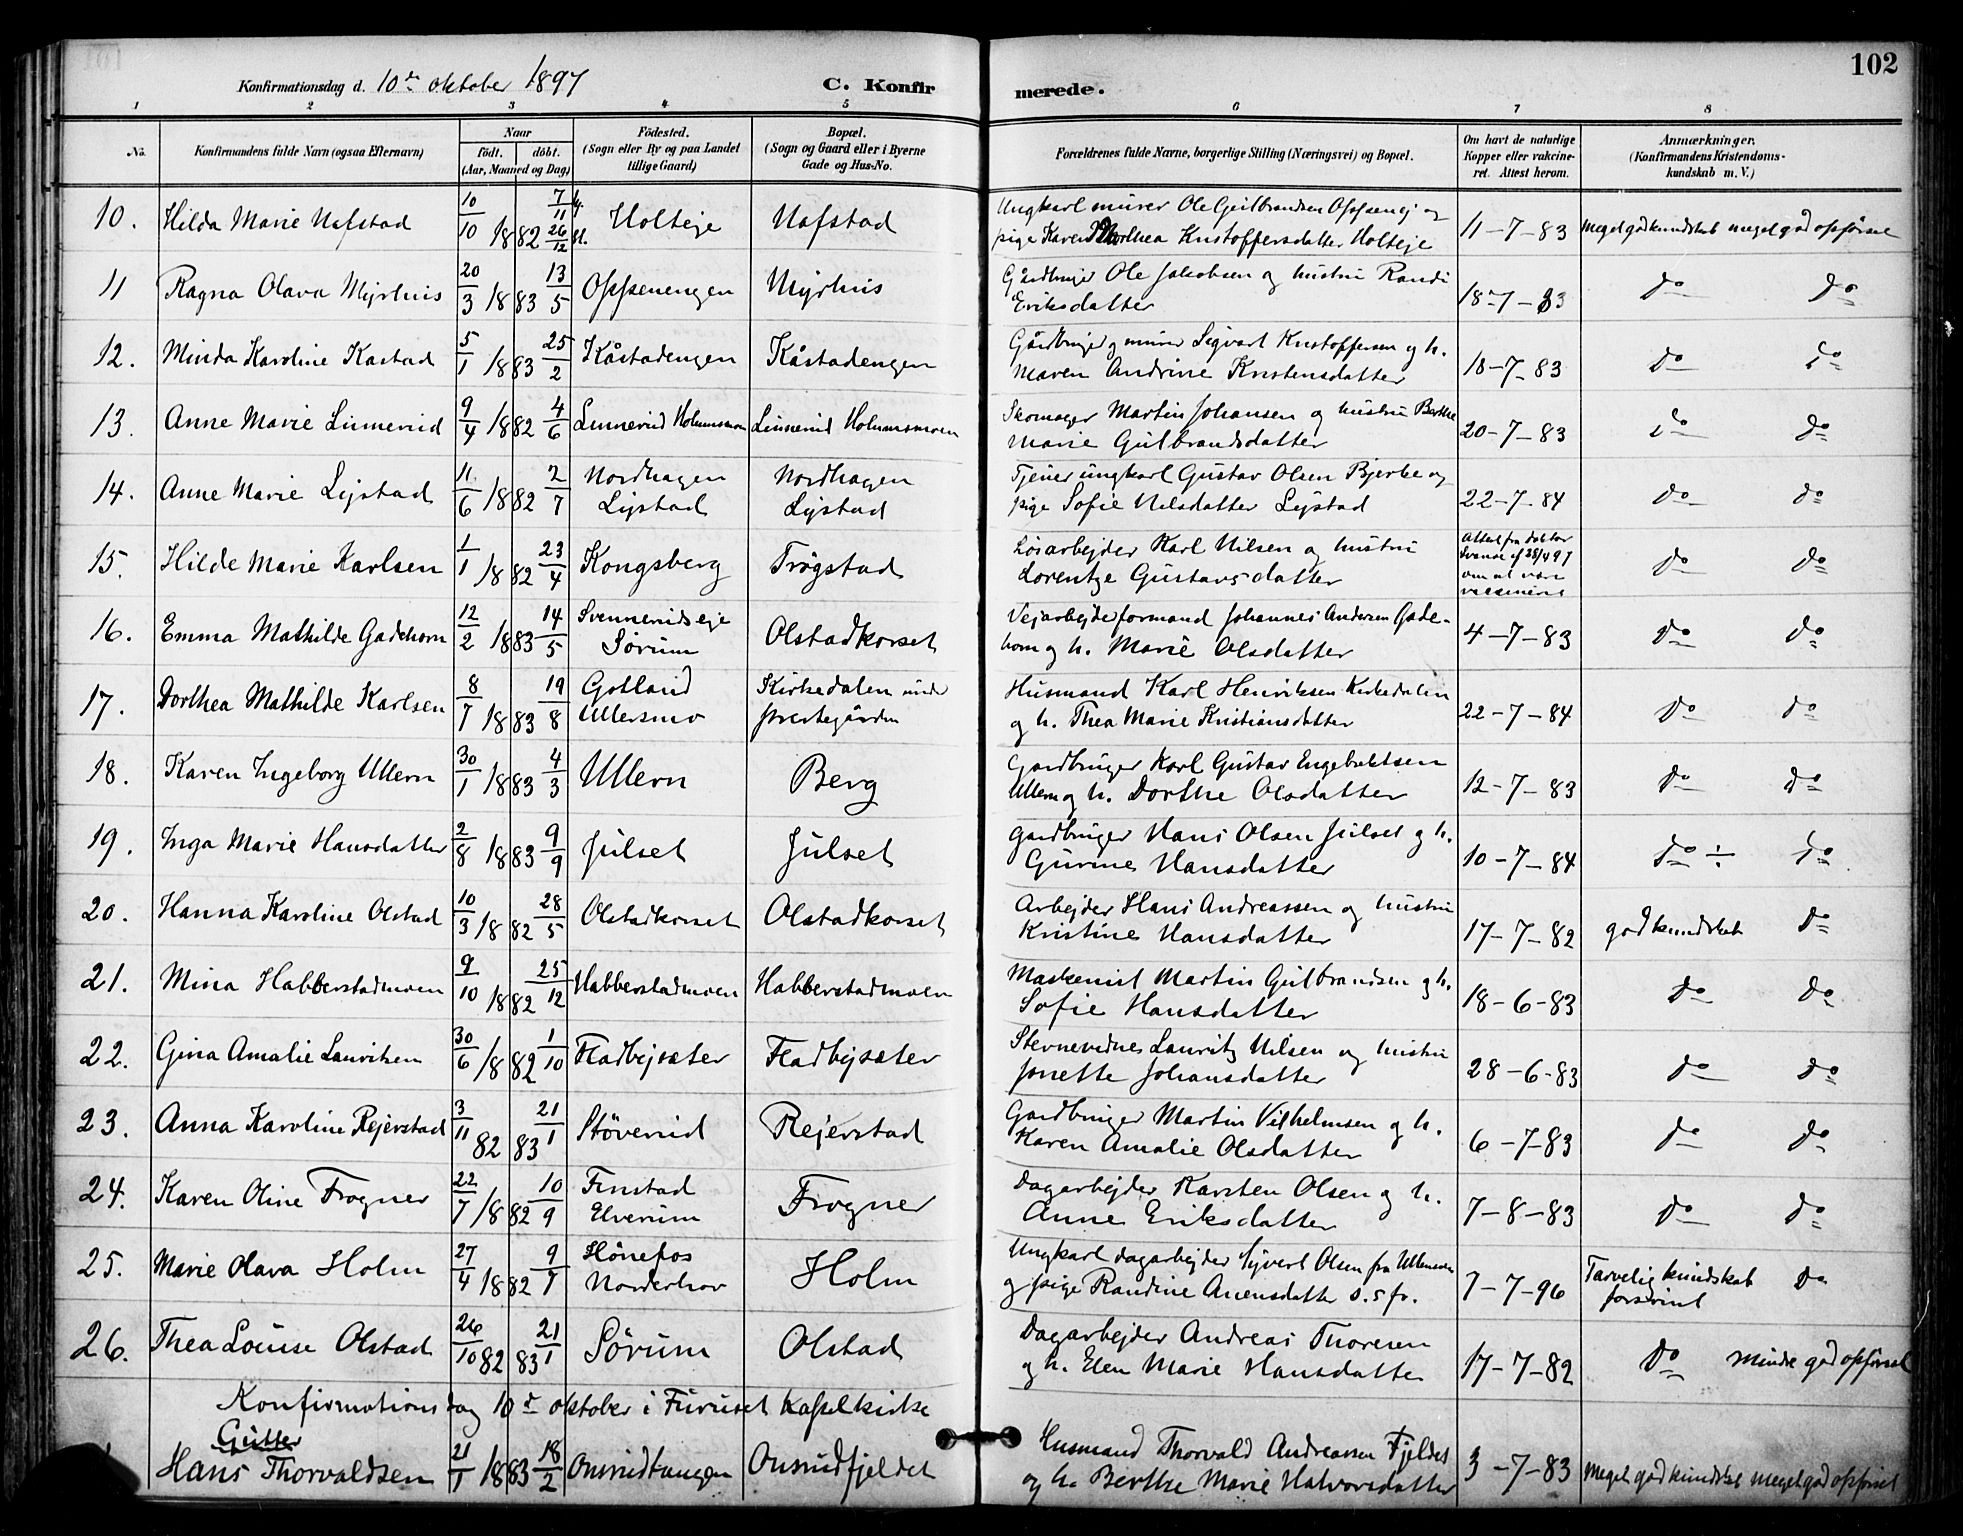 102
Konfirmationsdag d. 10de oktober 1897
C. Konfirmerede.
1 2 3 4 5 6 7 8
No.
Konfirmandens fulde Navn (ogsaa Efternavn)
Naar
födt. döbt.
(Aar, Maaned og Dag)
Födested.
(Sogn eller By og paa Landet
tillige Gaard)
Bopæl.
(Sogn og Gaard eller i Byerne
Gade og Hus-No.
Forældrenes fulde Navne, borgerlige Stilling (Næringsvei) og Bopæl.
Om havt de naturlige
Kopper eller vakcine-
ret. Attest herom.
Anmærkninger.
(Konfirmandens Kristendoms-
kundskab m. V.)
10. Hilda Marie Nafstad 10/10 1882 7/11 26/12 Holteje Nafstad Ungkarl murer Ole Gulbrandsen Oppenej og 11-7-83 Meget god kundskab meget god opförsel
pige Karen Dorthea Kristoffersdatter Holteje
11 Ragna Olava Myrhus 20/3 1883 13/5 Oppenengen Myrhus Gårdbruger Ole Jakobsen og hustru Randi 18-7-83 do do
Eriksdatter
12. Minda Karoline Kastad 5/1 1883 25/2 Kåstadengen Kåstadengen Gårdbruger og murer Sigvart Kristoffersen og h. 18-7-83 do do
Maren Andrine Kristensdatter
13. Anne Marie Linnerud 9/4 1882 4/6 Linnerud Holmsmoen Linnerud Holmsmoen Skomager Martin Johansen og hustru Berthe 20-7-83 do do
Marie Gulbrandsdatter
14. Anne Marie Lystad 11/6 1882 2/7 Nordhagen Nordhagen Tjener ungkarl Gustav Olsen Bjerke og 22-7-84 do do
Lystad Lystad pige Sofie Nilsdatter Lystad
15. Hilde Marie Karlsen 1/1 1882 23/4 Kongsberg Trøgstad Løsarbejder Karl Nilsen og hustru Attest fra doktor do do
Lorentze Gustavsdatter af 28/4 97
om at være
16. Emma Mathilde Gadehorn 12/2 1883 14/5 Svennerudseje Olstadkorset Vejarbejdeformand Johannes Andersen Gade- 4-7-83 do do
Sørum horn og h. Marie Olsdatter
17. Dorthea Mathilde Karlsen 8/7 1883 19/8 Gotland Kirkedalen under Husmand Karl Henriksen Kirkedalen 22-7-84 do do
Ullersmo prestegården og h. Thea Marie Kristiansdatter
18. Karen Ingeborg Ullern 30/1 1883 4/3 Ullern Berg Gardbruger Karl Gustav Engebretsen 12-7-83 do do
Ullern og h. Dorthe Olsdatter
19. Inga Marie Hansdatter 2/8 1883 9/9 Julset Julset Gardbruger Hans Olsen Julset og h. 10-7-84 do ÷ do
Gurine Hansdatter
20. Hanna Karoline Olstad 10/3 1882 28/5 Olstadkorset Olstadkorset Arbejder Hans Andreassen og hustru 17-7-82 god kundskab do
Kristine Hansdatter
21. Mina Habberstadmoen 9/10 1882 25/12 Habberstadmoen Habberstadmoen Maskenist Martin Gulbrandsen og h. 18-6-83 do do
Sofie Hansdatter
22. Gina Amalie Lauritsen 30/6 1882 1/10 Fladbysæter Fladbysæter Stevnevidnes Lauritz Nilsen og hustru 28-6-83 do do
Jonette Johansdatter
23. Anna Karoline Rejerstad 3/11 82 21/1 83 Støverud Rejerstad Gardbruger Martin Vilhelmsen og h. 6-7-83 do do
Karen Amalie Olsdatter
24. Karen Oline Frogner 22/7 1882 10/9 Finstad Frogner Dagarbejder Karsten Olsen og h. 7-8-83 do do
Elverum Anne Eriksdatter
25. Marie Olava Holm 27/4 1882 9/7 Hönefos Holm Ungkarl dagarbejder Syvert Olsen fra Ullensaker 7-7-96 Tarvelig kundskab do
Norderhov og pige Randine Anensdatter s. s fr. forsvint
26. Thea Louise Olstad 26/10 82 21/1 83 Sörum Olstad Dagarbejder Andreas Thoresen 17-7-82 do mindre god opförsel
og h. Elen Marie Hansdatter
Konfirmationsdag 10de oktober i Furuset kapelkirke
Gutter
Hans Thorvaldsen 21/1 1883 18/2 Onsrudtangen Onsrudfjeldet Husmand Thorvald Andreassen Fjeldet 3-7-83 Meget god kundskab meget god opförsel
og h. Berthe Marie Halvorsdatter